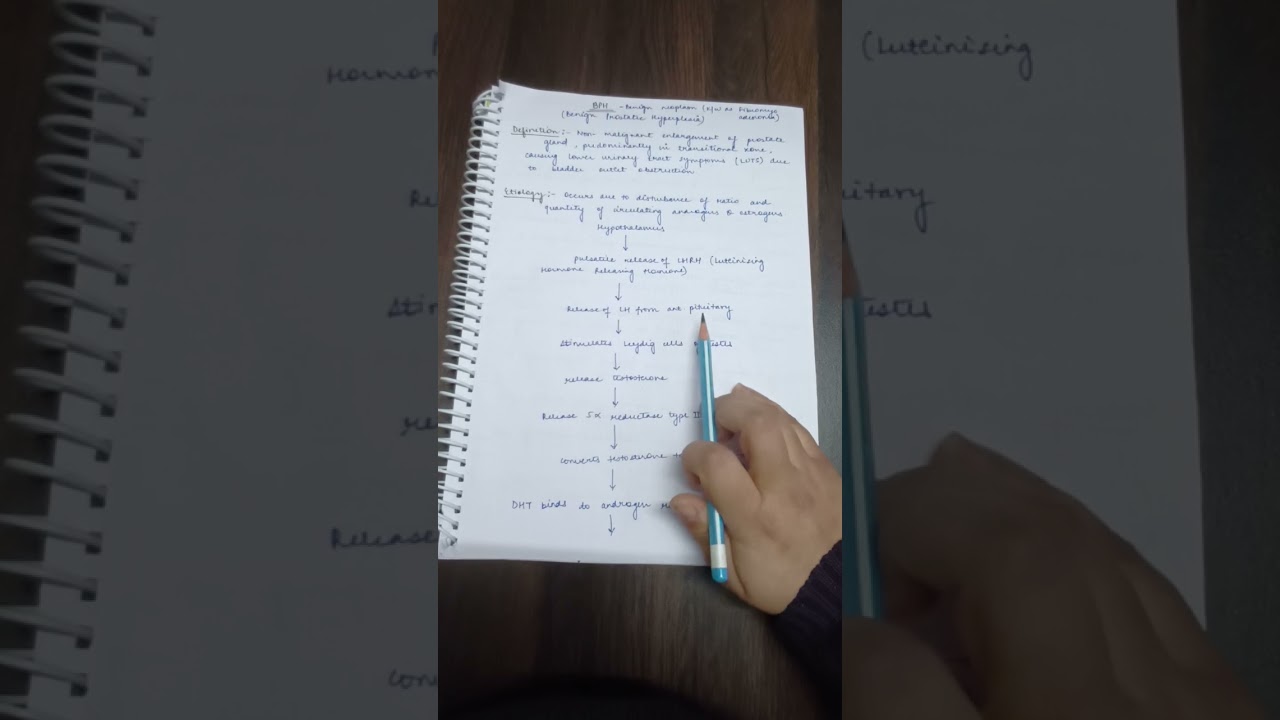 BPH - Benign neoplasm (k/w as Fibromyo
(Benign Prostatic Hyperplasia) adenoma)
Definition:- Non malignant enlargement of prostate
gland, predominently in transitional zone,
causing lower urinary tract symptoms (LUTS) due
to bladder outlet obstruction
Etiology:- Occurs due to disturbance of ratio and
quantity of circulating androgens & estrogens
Hypothalamus
↓
Pulsatile release of LHRH (Luteinizing
Hormone Releasing Hormone)
↓
Release of LH from ant pituitary
↓
Stimulates leydig cells testes
↓
release testosterone
↓
Release 5α reductase type II
↓
converts testosterone
↓
DHT binds to androgen
↓